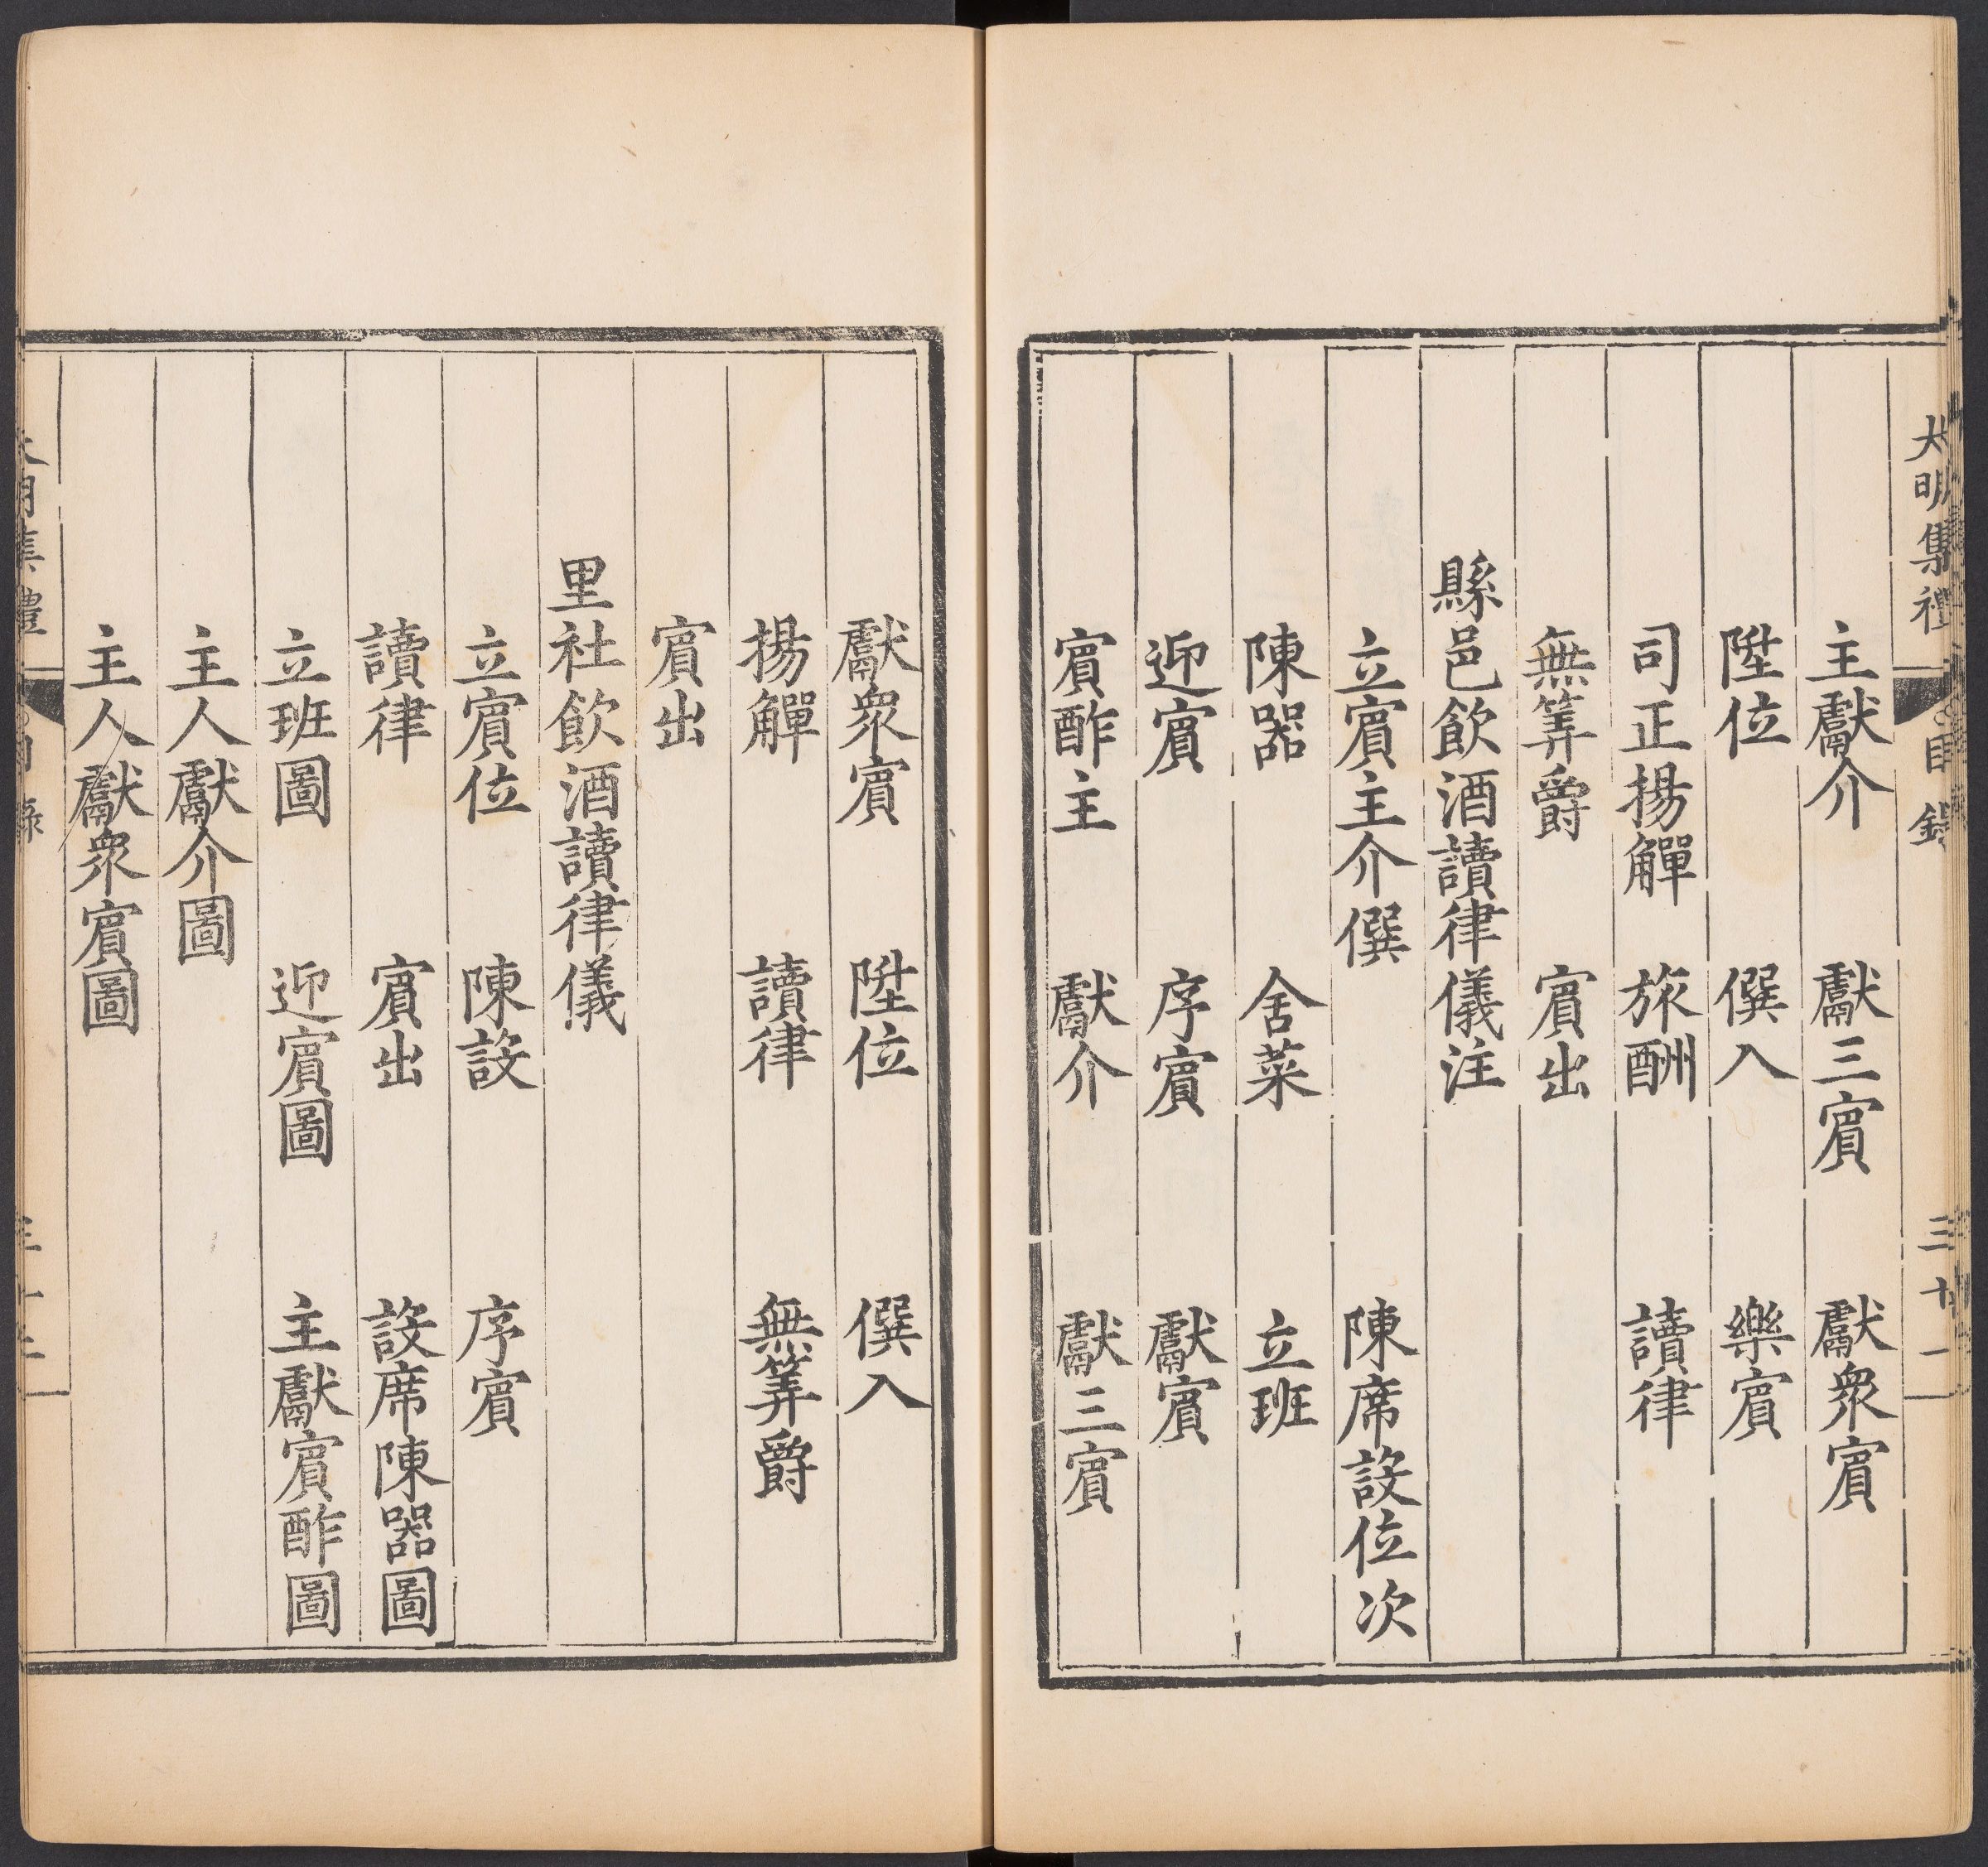 大明集禮
目錄
三十一
主獻介　獻三賔　獻衆賔
陞位　僎入　樂賔
司正揚觶　旅酬　讀律
無筭爵　賔出
縣邑飲酒讀律儀注
立賔主介僎　陳席設位次
陳器　舍菜　立班
迎賔　序賔　獻賔
賔酢主　獻介　獻三賔
獻衆賔　陞位　僎入
揚觶　讀律　無筭爵
賔出
里社飲酒讀律儀
立賔位　陳設　序賔
讀律　賔出　設席陳器圖
立班圖　迎賔圖　主獻賔酢圖
主人獻介圖
主人獻衆賔圖